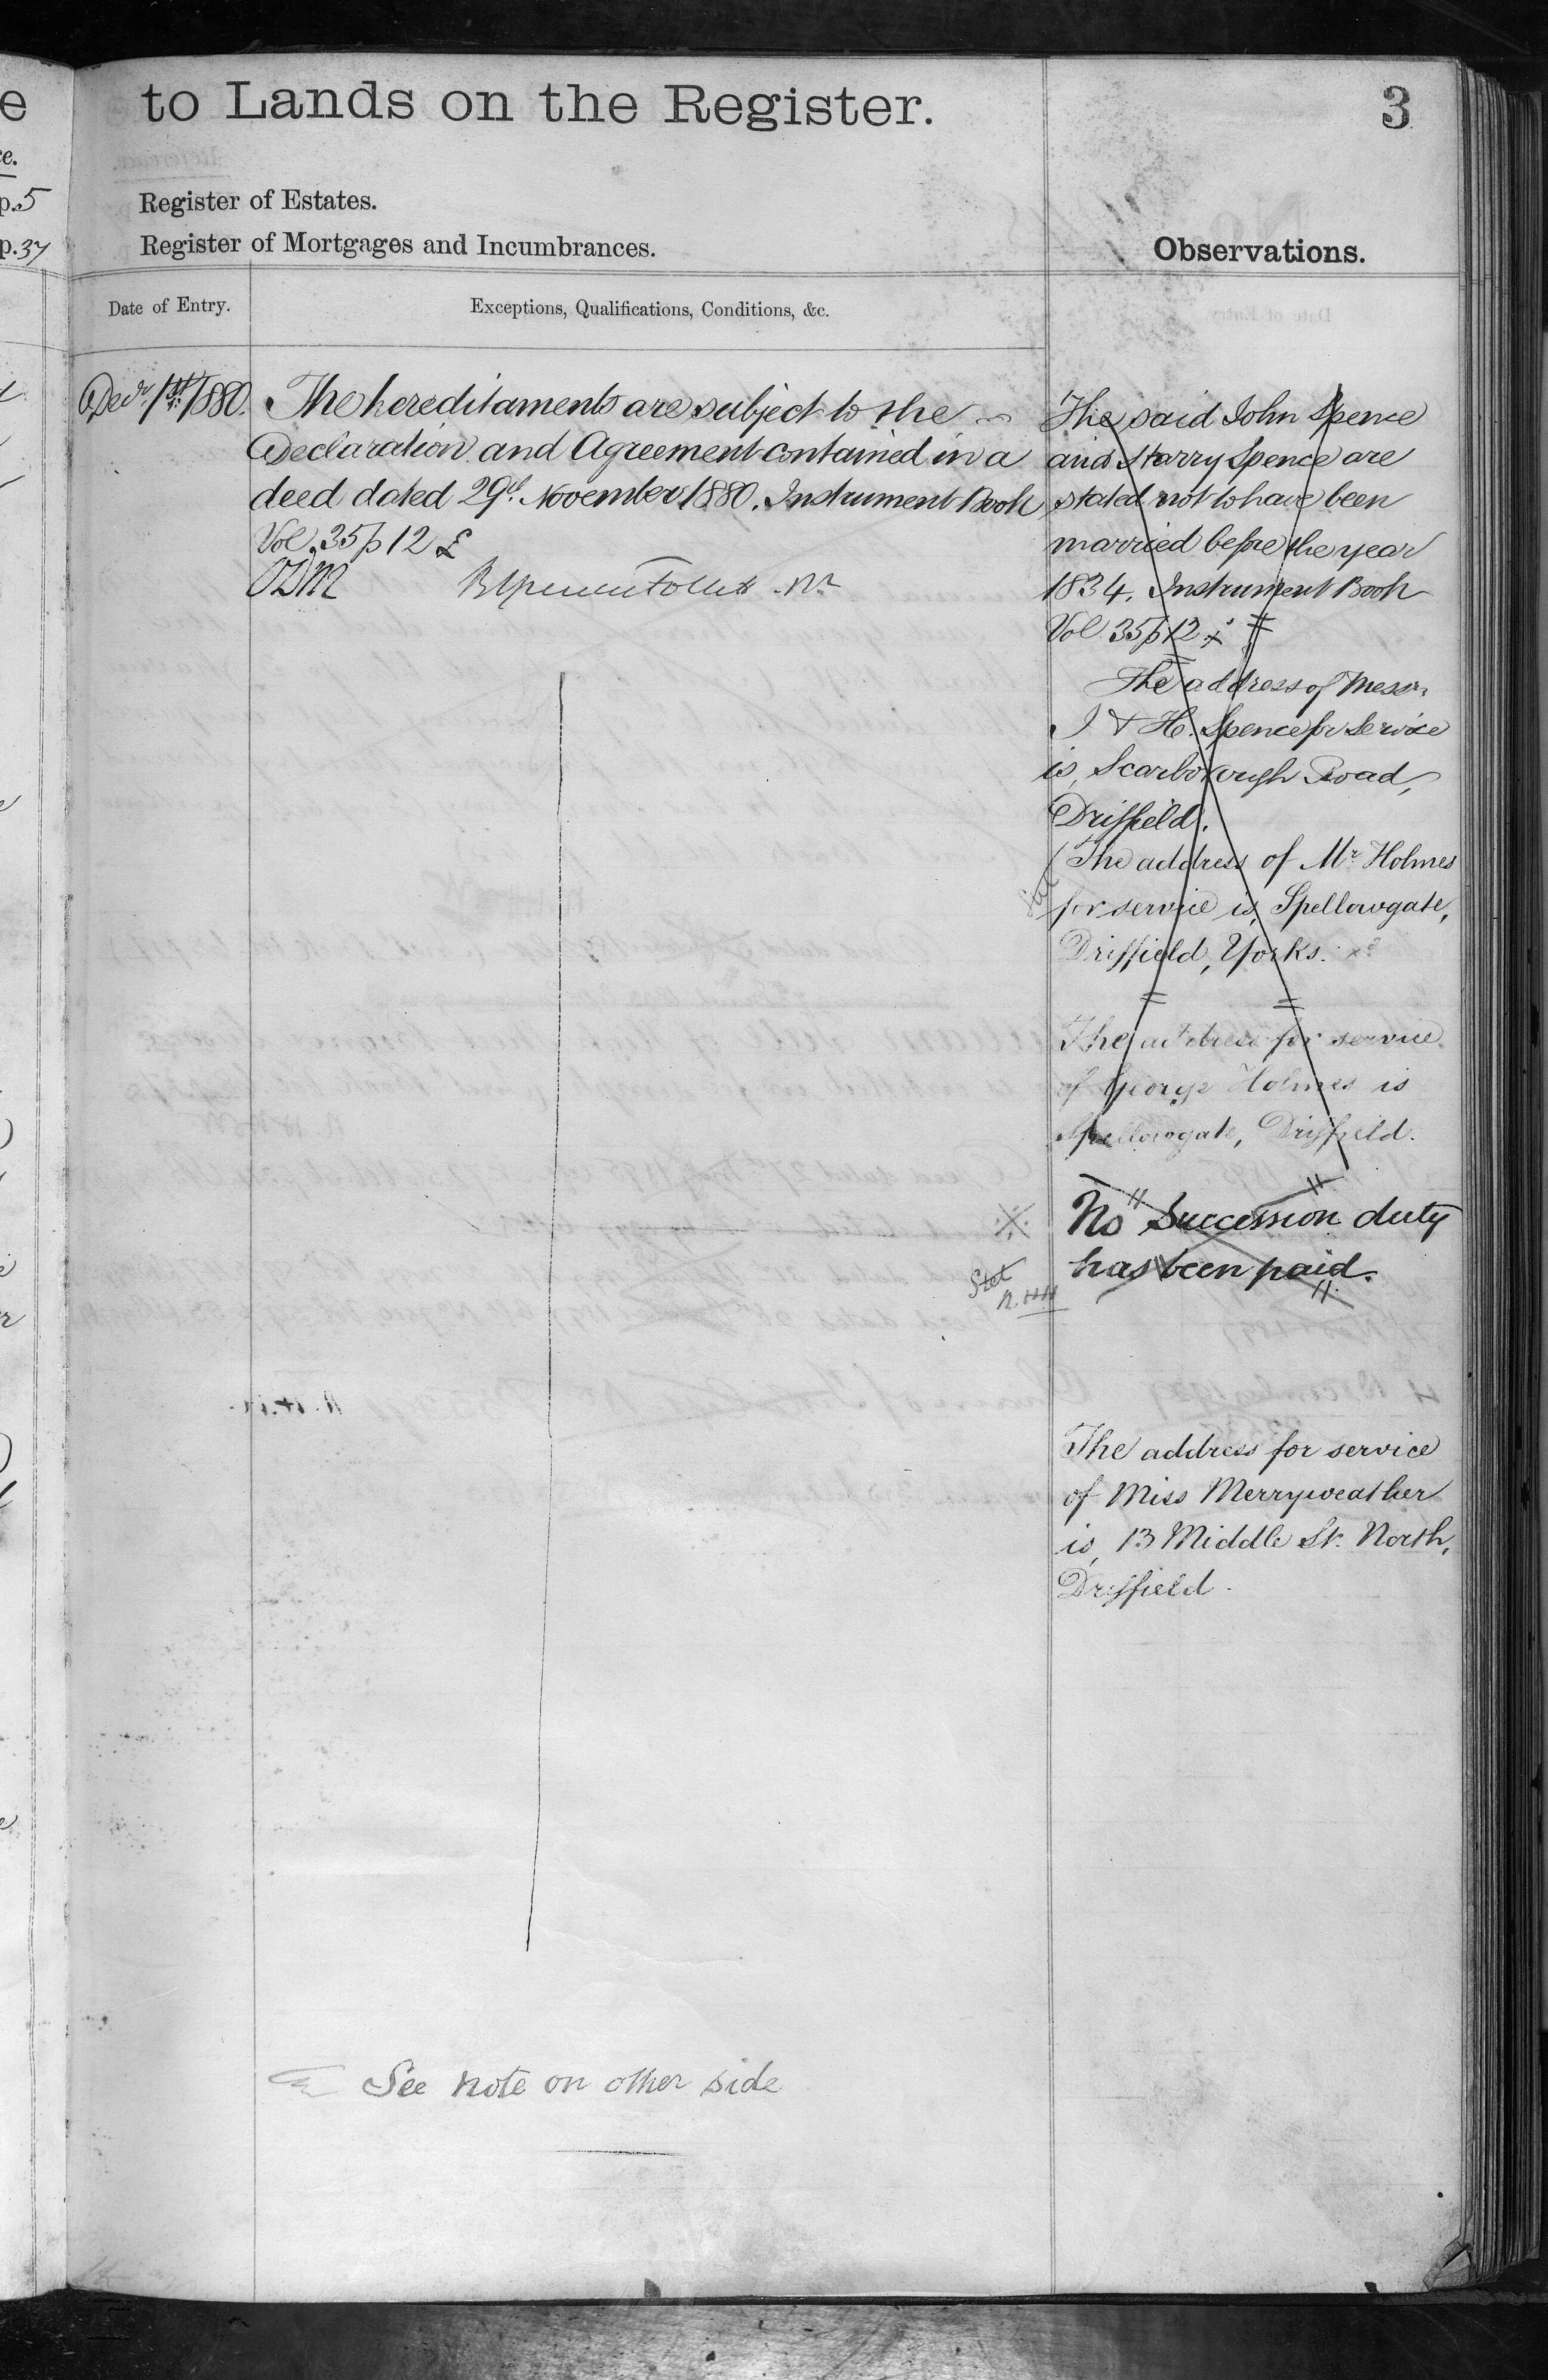 to Lands on the Register.
3
Register of Estates.
Register of Mortgages and Incumbrances.
Observations.
p.5
p.37
Date of Entry.
Exceptions, Qualifications, Conditions, &c.
Decr. 1st. 1880.
The hereditaments are subject to the
Declaration and Agreement contained in a
deed dated 29th November 1880. Instrument Book
Vol. 35 p 12 £
ODM
The said John Spence
and Harry Spence are
stated not to have been
married before the year
1834. Instrument Book
Vol 35 p 12
The address of Messrs
J & H. Spence for Service
is, Scarborough Road,
Driffield.
The address of Mr Holmes
for service is, Spellowgate,
Driffield, Yorks.
The address for service
of George Holmes is
Spellowgate, Driffield.
No Succession duty
has been paid.
Stet
R.HH
The address for service
of Miss Merryweather
is, 13 Middle St. North,
Driffield.
See note on other side